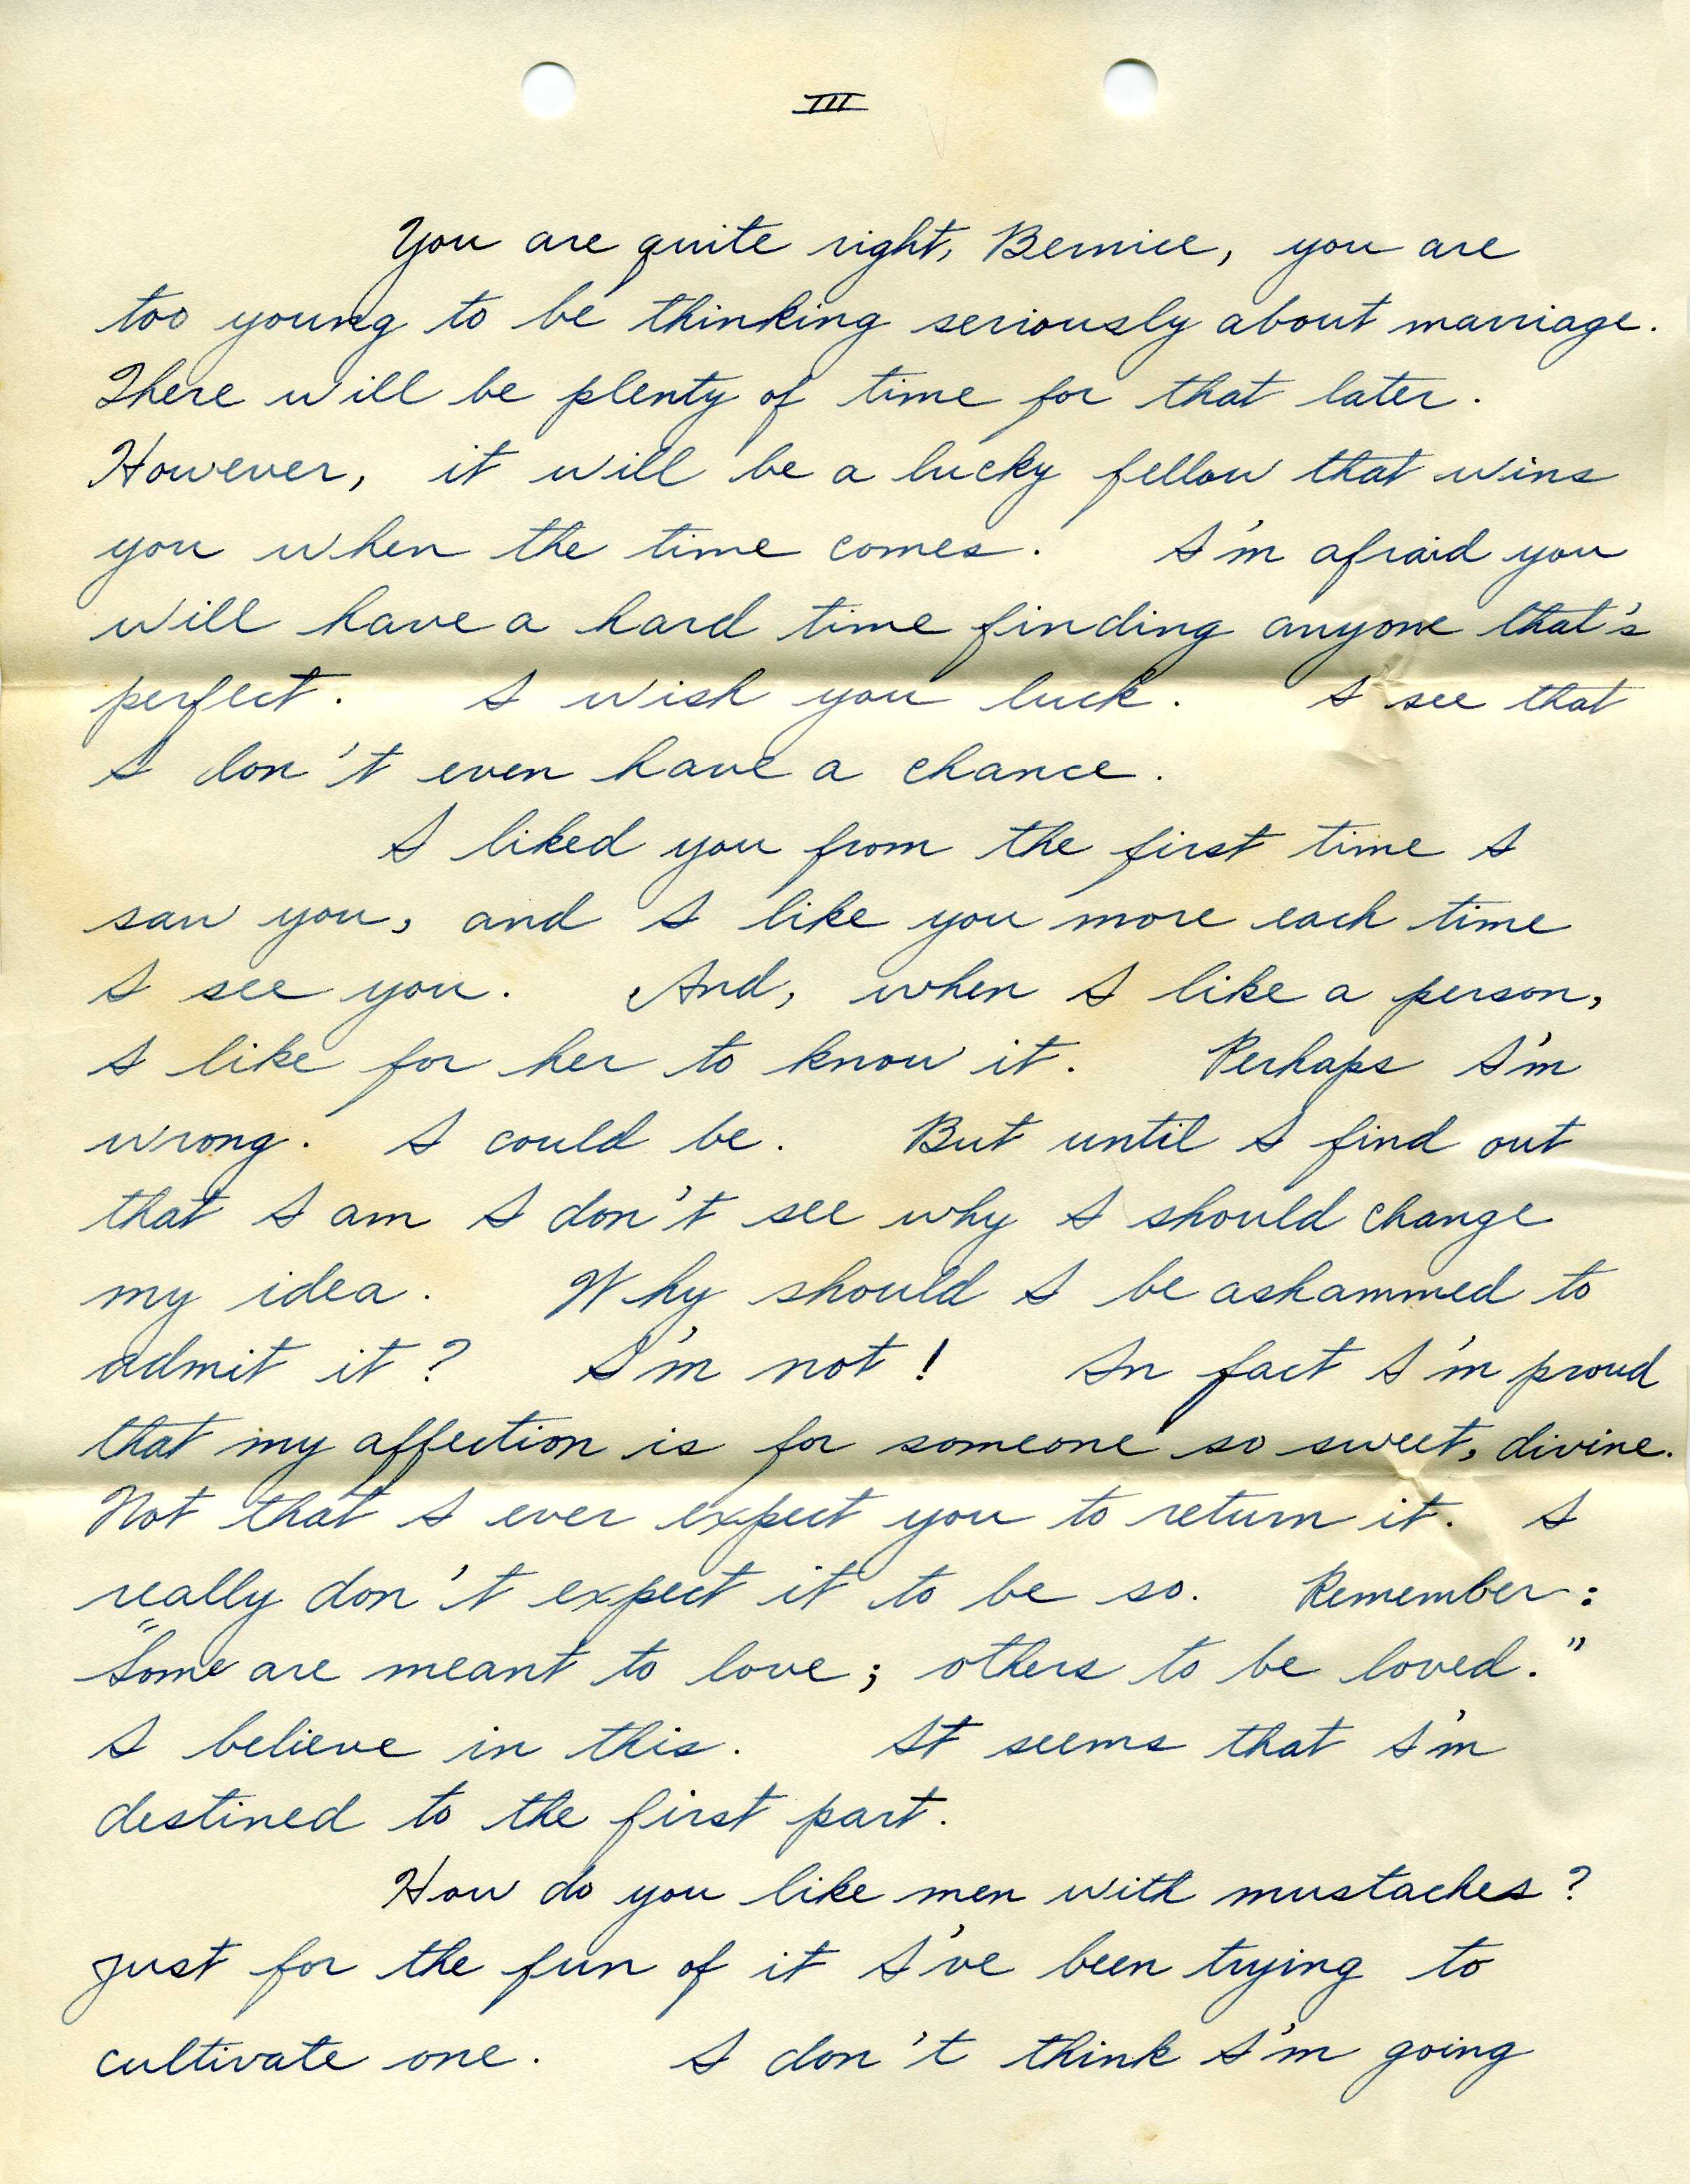 III
You are quite right, Bernice, you are
too young to be thinking seriously about marriage.
There will be plenty of time for that later.
However, it will be a lucky fellow that wins
you when the time comes. I'm afraid you
will have a hard time finding anyone that's
perfect. I wish you luck. I see that
I don't even have a chance.
I liked you from the first time I
saw you, and I like you more each time
I see you. And, when I like a person,
I like for her to know it. Perhaps I'm
wrong. I could be. But until I find out
that I am I don't see why I should change
my idea. Why should I be ashammed to
admit it? I'm not! In fact I'm proud
that my affection is for someone so sweet, divine.
Not that I ever expect you to return it. I
really don't expect it to be so. Remember:
"Some are meant to love; others to be loved."
I believe in this. It seems that I'm
destined to the first part.
How do you like men with mustaches?
Just for the fun of it I've been trying to
cultivate one. I don't think I'm going